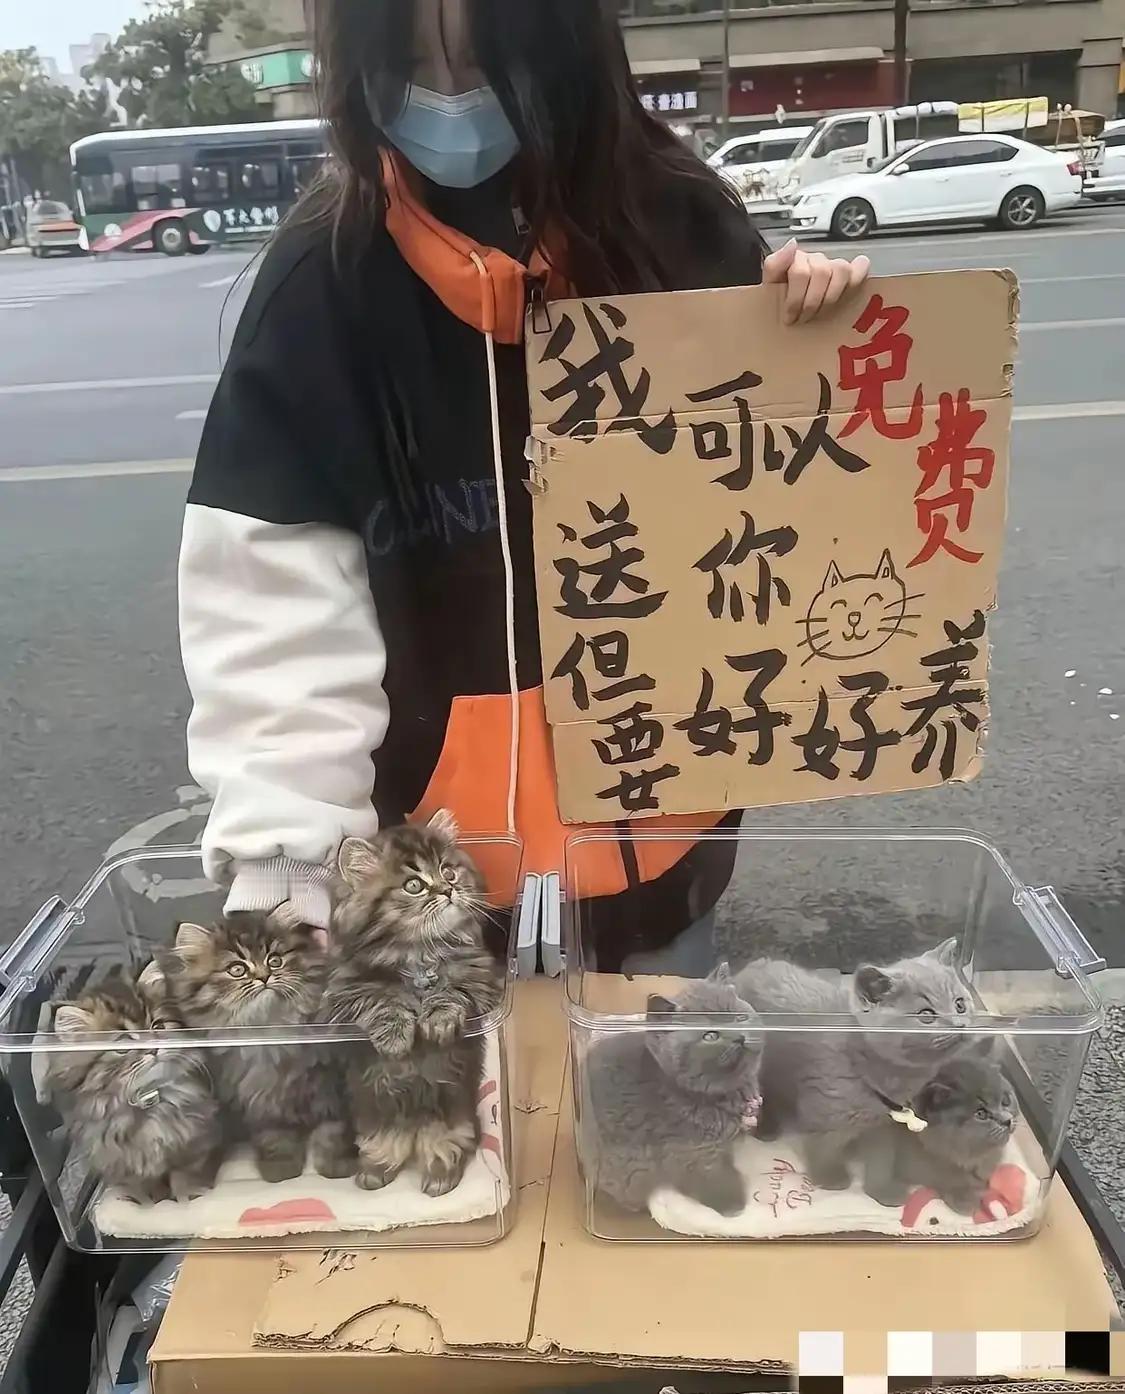 我可以免费
送你
但要好好养